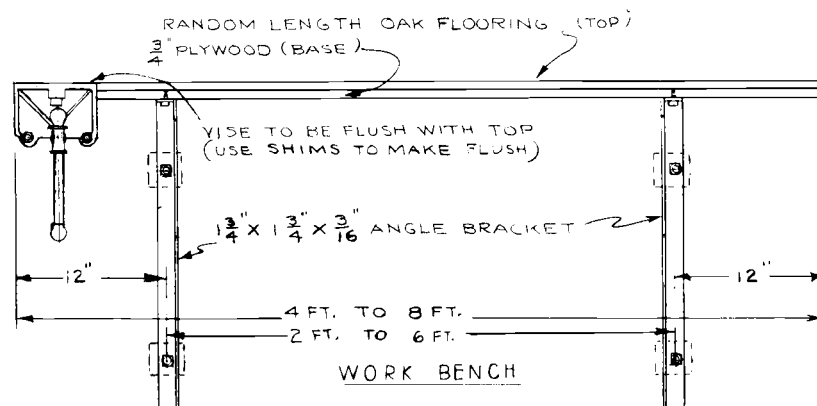 RANDOM LENGTH OAK FLOORING (TOP)
3/4" PLYWOOD (BASE)
VISE TO BE FLUSH WITH TOP
(USE SHIMS TO MAKE FLUSH)
1 3/4" X 1 3/4" X 3/16" ANGLE BRACKET
12"
12"
4 FT. TO 8 FT.
2 FT. TO 6 FT.
WORK BENCH